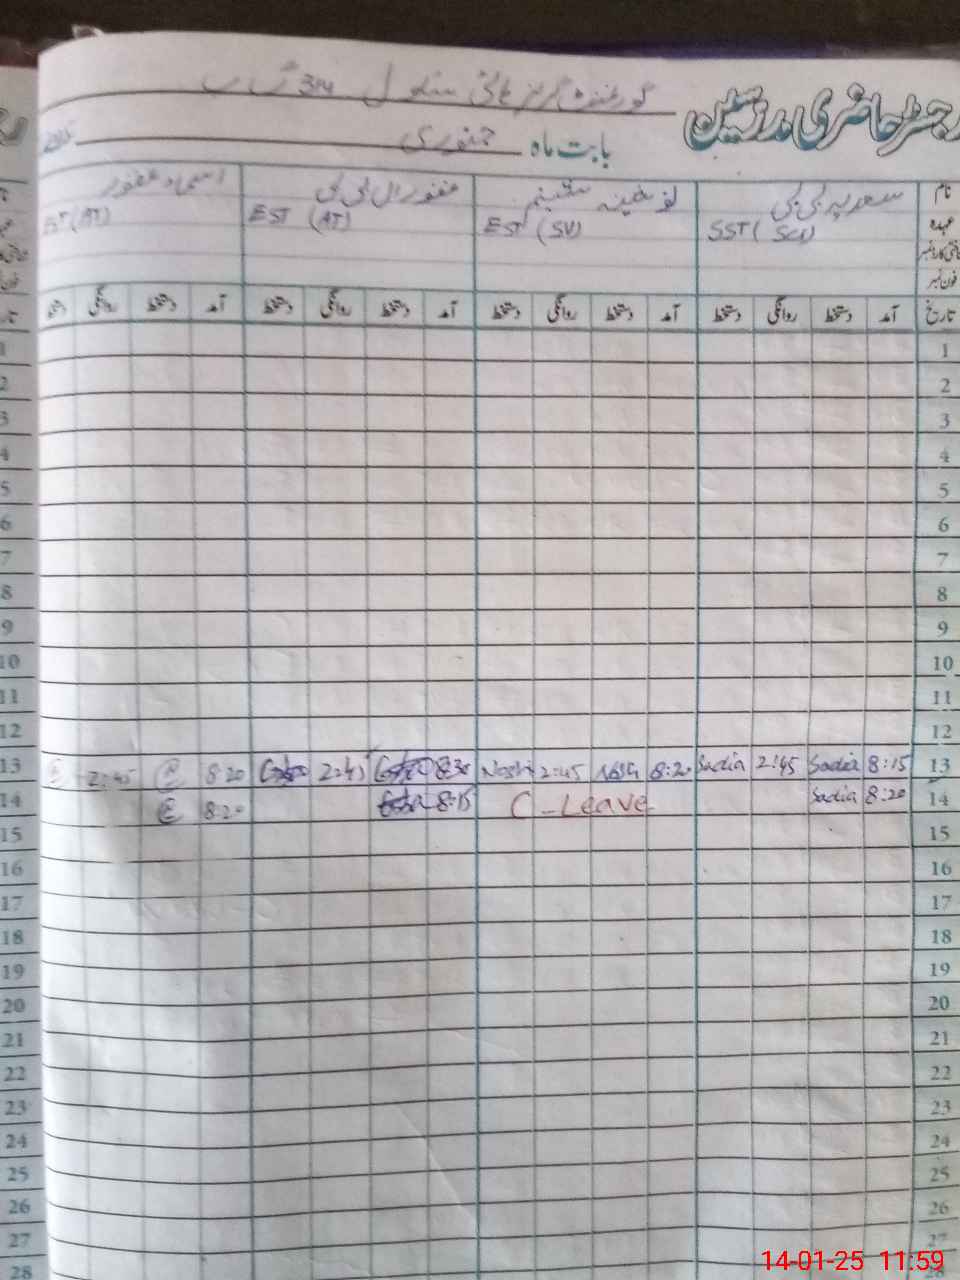 رجسٹر حاضری مدرسین
گورنمنٹ گرلز ہائی سکول 314 گ ب
بابت ماہ جنوری 2025
نام سعدیہ بی بی شبنم غفوراں بی بی اسماء غفور
عہدہ SST ( Sci) EST (SV) EST (AT) EST (AT)
شناختی کارڈ نمبر
فون نمبر
تاریخ آمد دستخط روانگی دستخط آمد دستخط روانگی دستخط آمد دستخط روانگی دستخط آمد دستخط روانگی دستخط
1
2
3
4
5
6
7
8
9
10
11
12
13 8:15 Sadia 2:45 Sadia 8:20 2:45 8:30 2:45 8:20 2:45 13
14 8:20 Sadia C-Leave 8:15 8:20 14
15
16
17
18
19
20
21
22
23
24
25
26
27
28
14-01-25 11:59